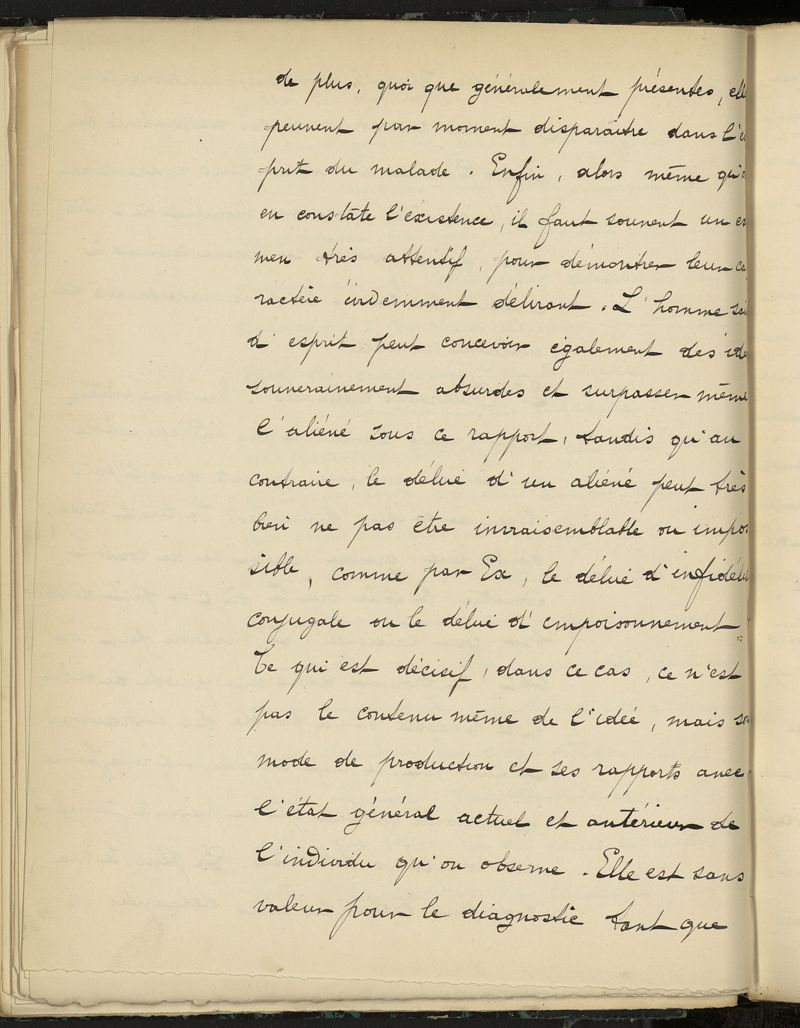 de plus, quoi que généralement présentes, elle
peuvent par moment disparaître dans l'e
prit du malade. Enfin, alors même qu'o
en constate l'éxistence, il faut souvent un ex
men très attentif, pour démontrer leur ca
ractère évidemment délirant. L'homme sai
d'esprit peut concevoir également des idé
souverainement absurdes et surpasser même
l'aliéné sous ce rapport, tandis qu'au
contraire, le délire d'un aliéné peut très
bien ne pas être invraisemblable ou impos
sible, comme par Ex, le délire d'infidéli
conjugale ou le délire d'empoisonnement
Ce qui est décisif, dans ce cas, ce n'est
pas le contenu même de l'idée, mais so
mode de production et ses rapports avec
l'état général actuel et antérieur de
l'individu qu'on observe. Elle est sans
valeur pour le diagnostic tant que